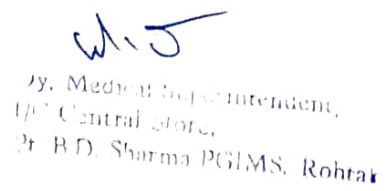 Dy. Medical Superintendent,
I/C Central Store,
Pt. B.D. Sharma PGIMS, Rohtak